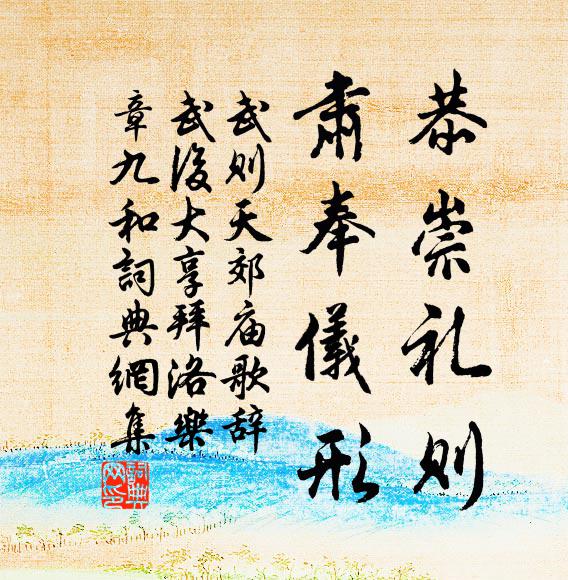 恭崇礼则
肃奉儀形
武则天郊庙歌辞
武後大享拜洛樂
章九和詞典網集